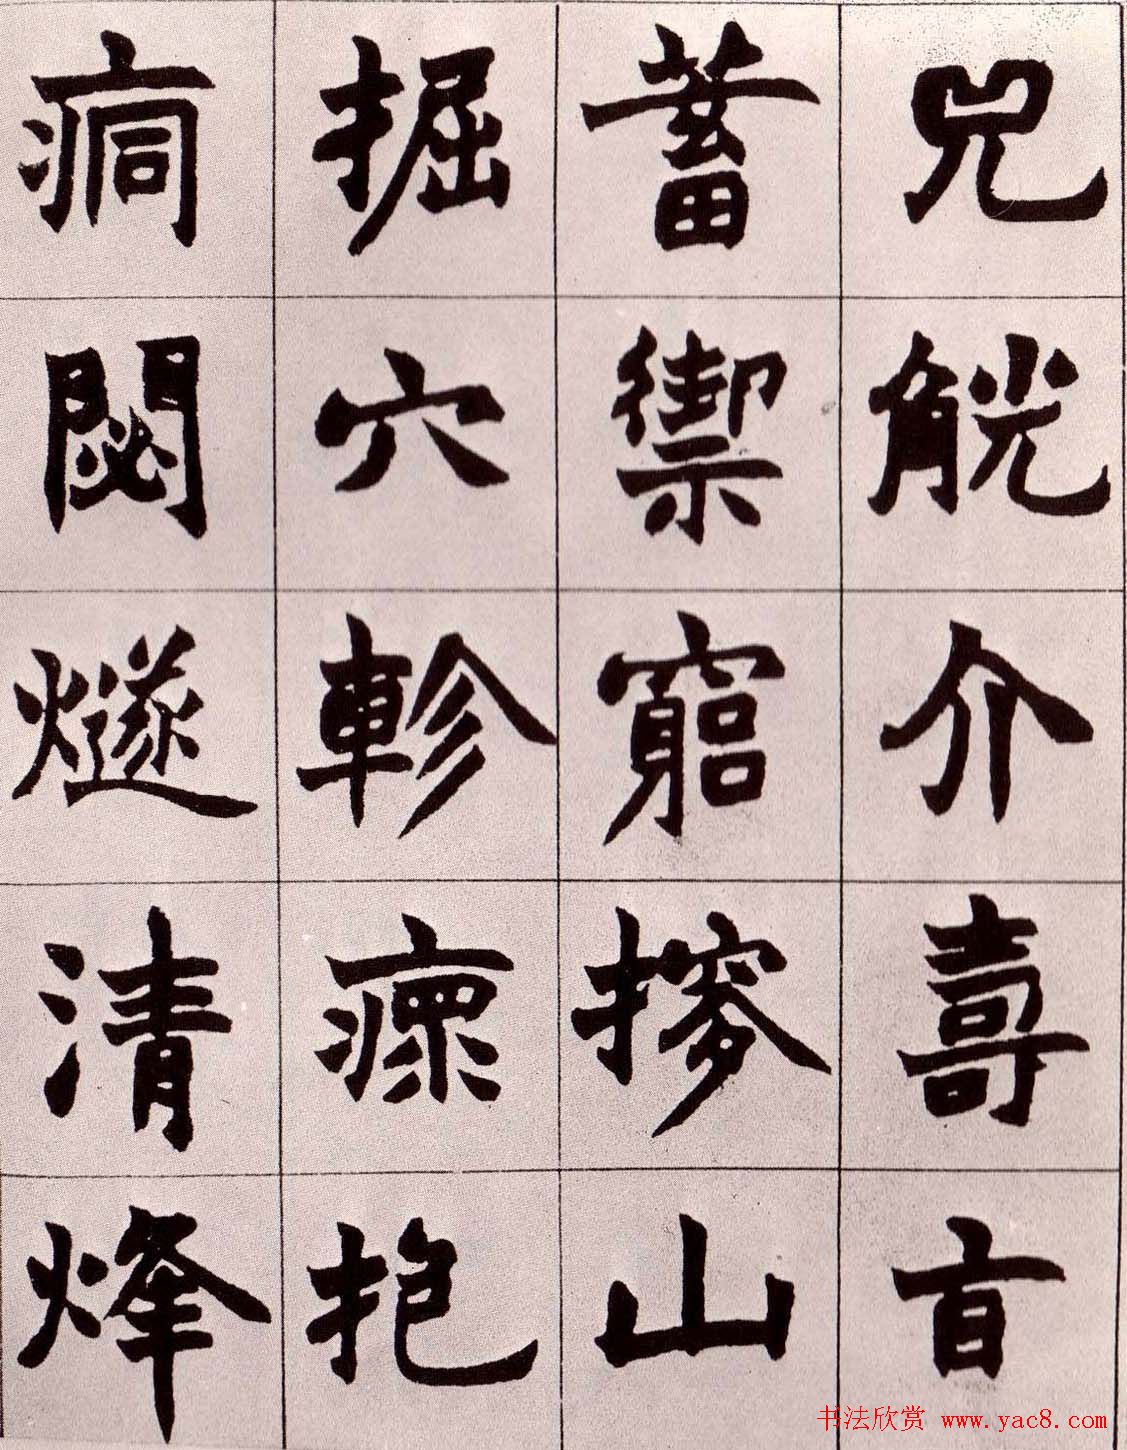 兕觥介壽旨
蓄禦竆山
掘穴軫瘝抱
痌閟燧清烽
书法欣赏 www.yac8.com